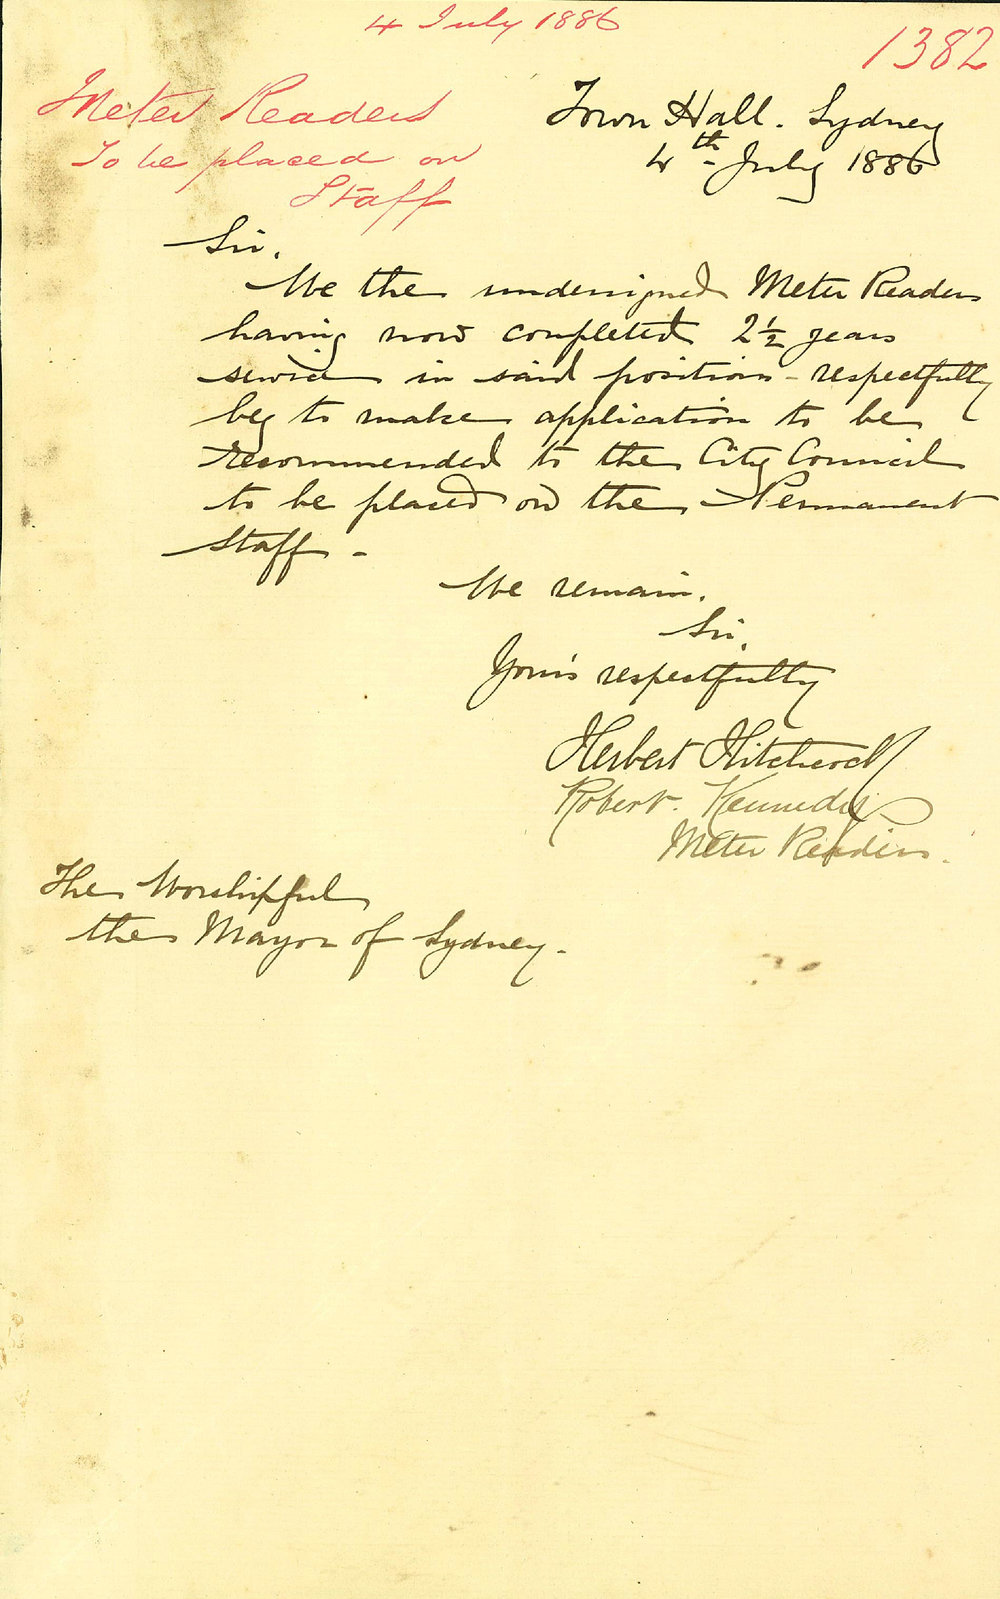 4 July 1886
1382
Meter Readers
To be placed on
Staff
Town Hall. Sydney
4th July 1886
Sir,
We the undersigned Meter Readers
having now completed 2½ years
service in said position - respectfully
beg to make application to be
recommended to the City Council
to be placed on the Permanent
Staff -
We remain,
Sir,
Yours respectfully
Herbert Hitchcock
Robert. Kennedy
Meter Readers.
The Worshipful
the Mayor of Sydney -